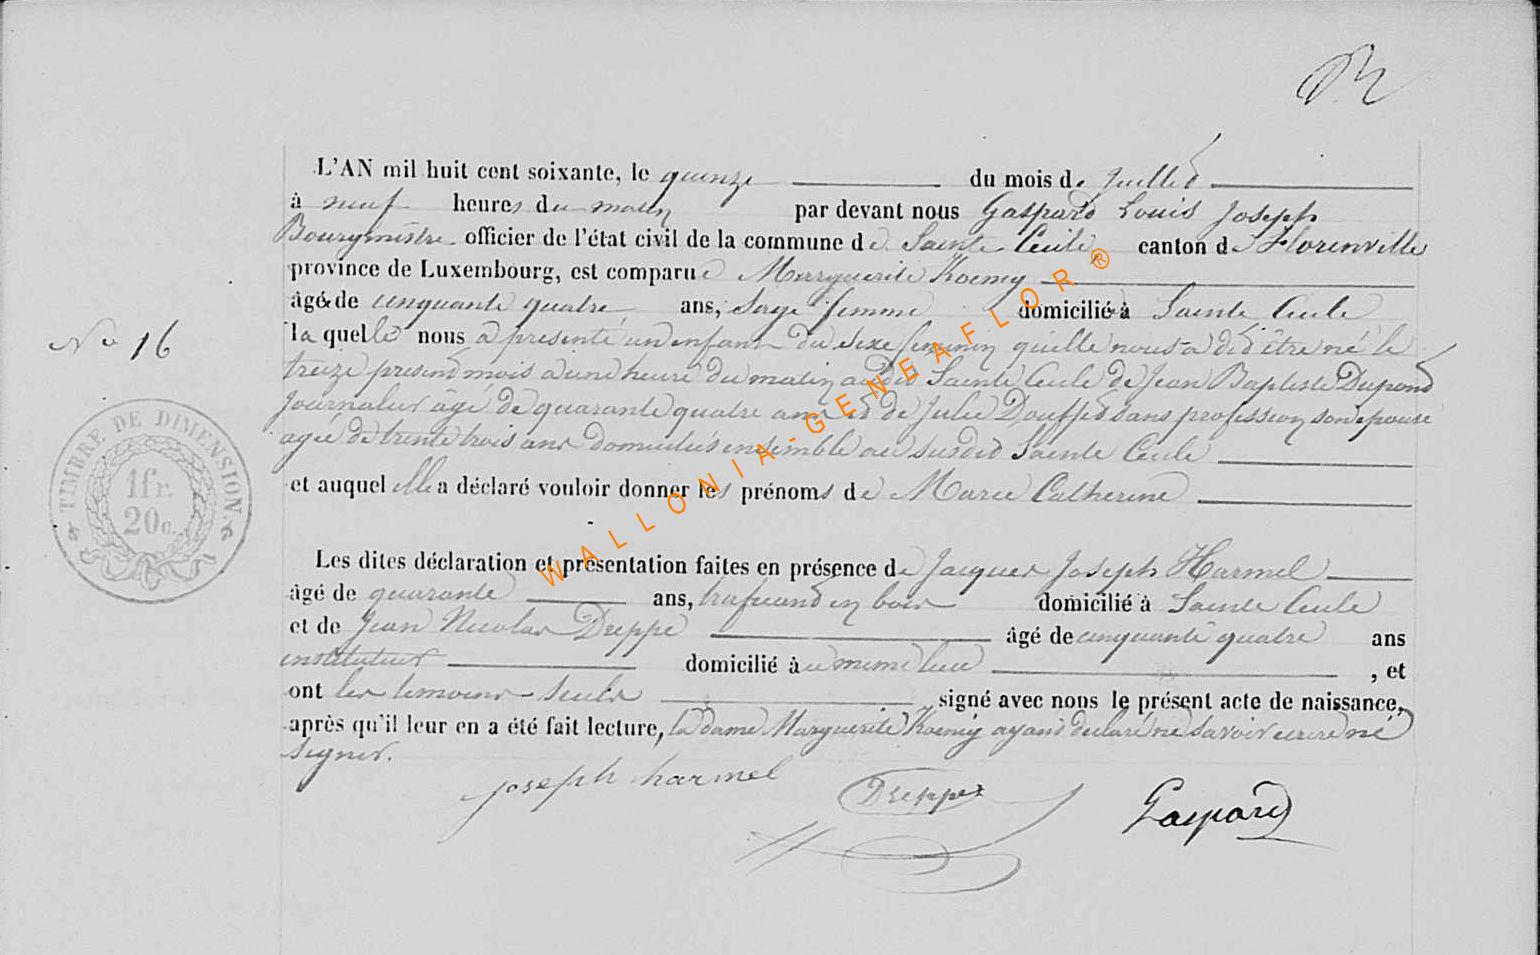 L'AN mil huit cent soixante, le quinze du mois de juillet
à neuf heures du matin par devant nous Gaspard Louis Joseph
Bourgmestre officier de l'état civil de la commune de Sainte Cecile canton de Florenville
province de Luxembourg, est comparue Marguerite Koenig
âgée de cinquante quatre ans, Sage femme domiciliée à Sainte Cecile
No 16
la quelle nous a présenté un enfant du sexe feminin qu'elle nous a dit être né le
treize present mois à une heure du matin audit Sainte Cecile de Jean Baptiste Dupond
Journalier âgé de quarante quatre ans et de Julie Douffet sans profession son epouse
agée de trente trois ans domiciliés ensemble au susdit Sainte Cecile
et auquel elle a déclaré vouloir donner les prénoms de Marie Catherine
TIMBRE DE DIMENSION.
1 fr.
20 c.
Les dites déclaration et présentation faites en présence de Jacques Joseph Harmel
âgé de quarante ans, trafiquand en bois domicilié à Sainte Cecile
et de Jean Nicolas Dreppe âgé de cinquante quatre ans
instituteur domicilié à u meme lieu , et
ont les temoins seuls signé avec nous le présent acte de naissance,
après qu'il leur en a été fait lecture, la dame Marguerite Koenig ayant declaré ne savoir ecrire ne
signer.
joseph harmel Dreppe Gaspard
WALLONIA-GENEAFLOR®